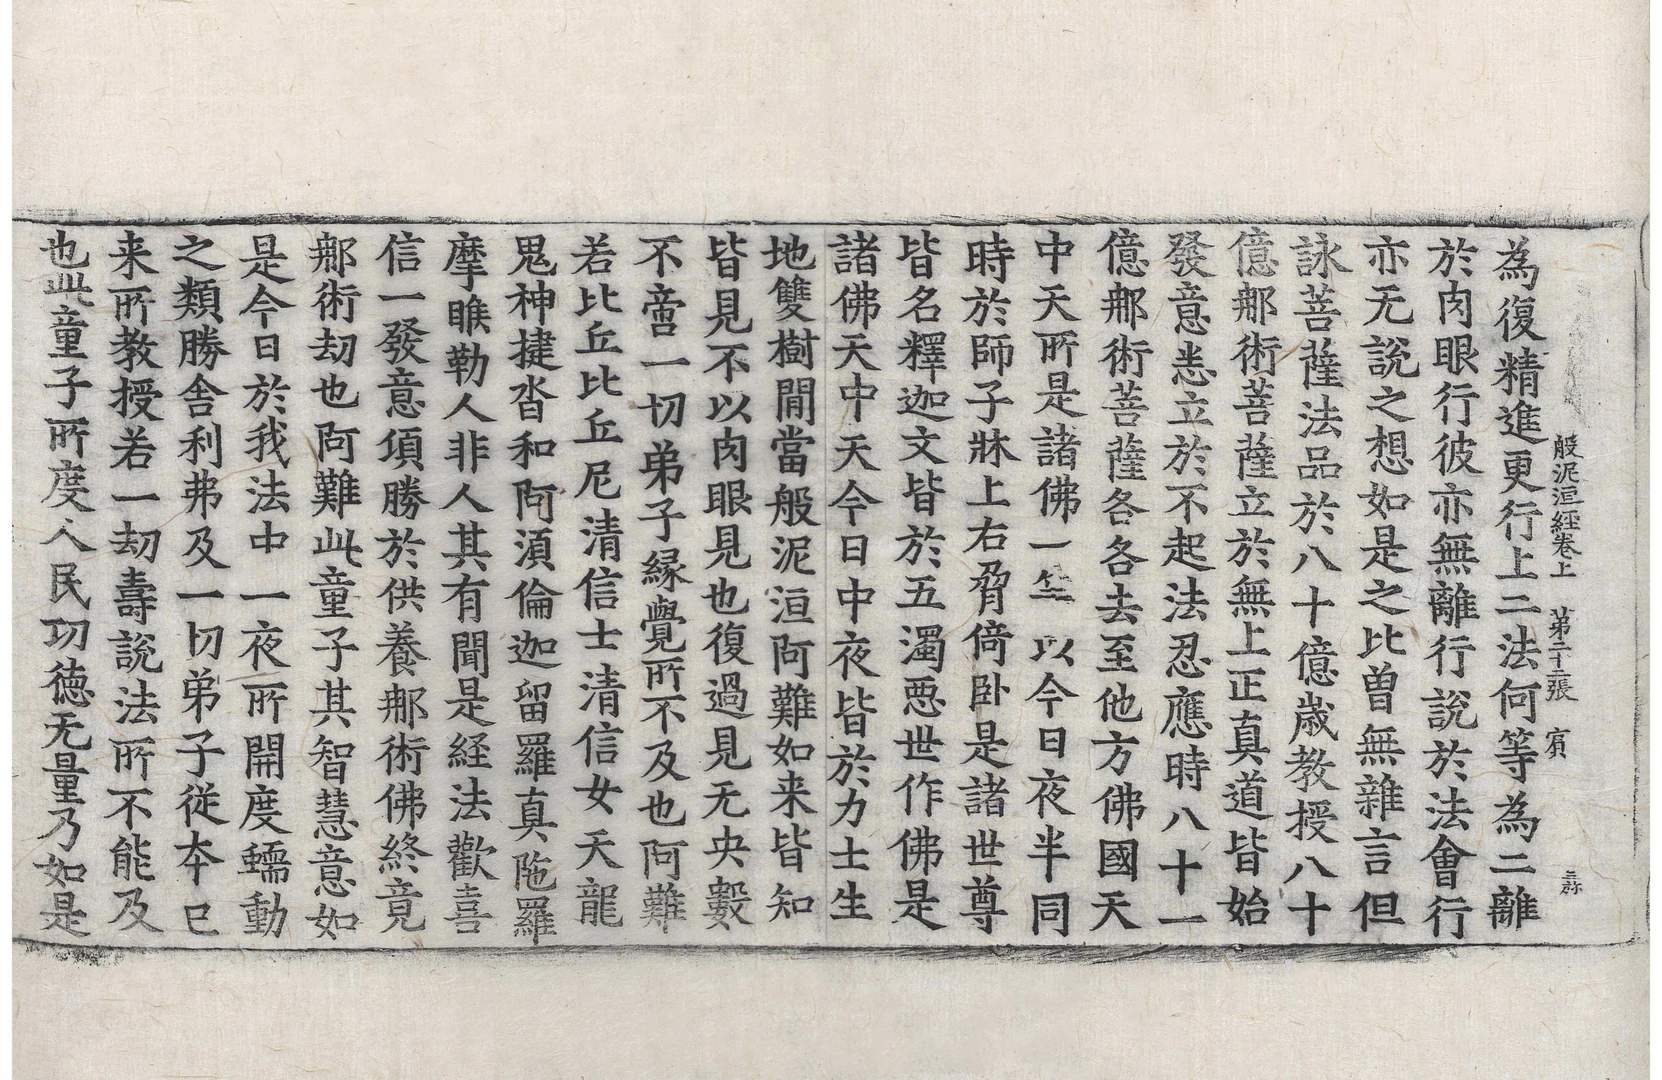 般泥洹經卷上 第二十三張 賔
為復精進更行上二法何等為二離
於肉眼行彼亦無離行說於法會行
亦无說之想如是之比曽無雜言但
詠菩薩法品於八十億歲教授八十
億郍術菩薩立於無上正真道皆始
發意悉立於不起法忍應時八十一
億郍術菩薩各各去至他方佛國天
中天所是諸佛一 以今日夜半同
時於師子牀上右脅倚卧是諸世尊
皆名釋迦文皆於五濁惡世作佛是
諸佛天中天今日中夜皆於力士生
地雙樹閒當般泥洹阿難如来皆知
皆見不以肉眼見也復過見无央數
不啻一切弟子縁覺所不及也阿難
若比丘比丘尼清信士清信女天龍
鬼神揵沓和阿湏倫迦留羅真陁羅
摩睺勒人非人其有聞是経法歡喜
信一發意項勝於供養郍術佛終竟
郍術劫也阿難此童子其智慧意如
是今日於我法中一夜所開度蠕動
之類勝舎利弗及一切弟子従夲已
来所教授若一劫壽說法所不能及
也此童子所度人民功德无量乃如是